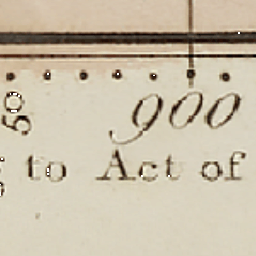 50
900
to Act of